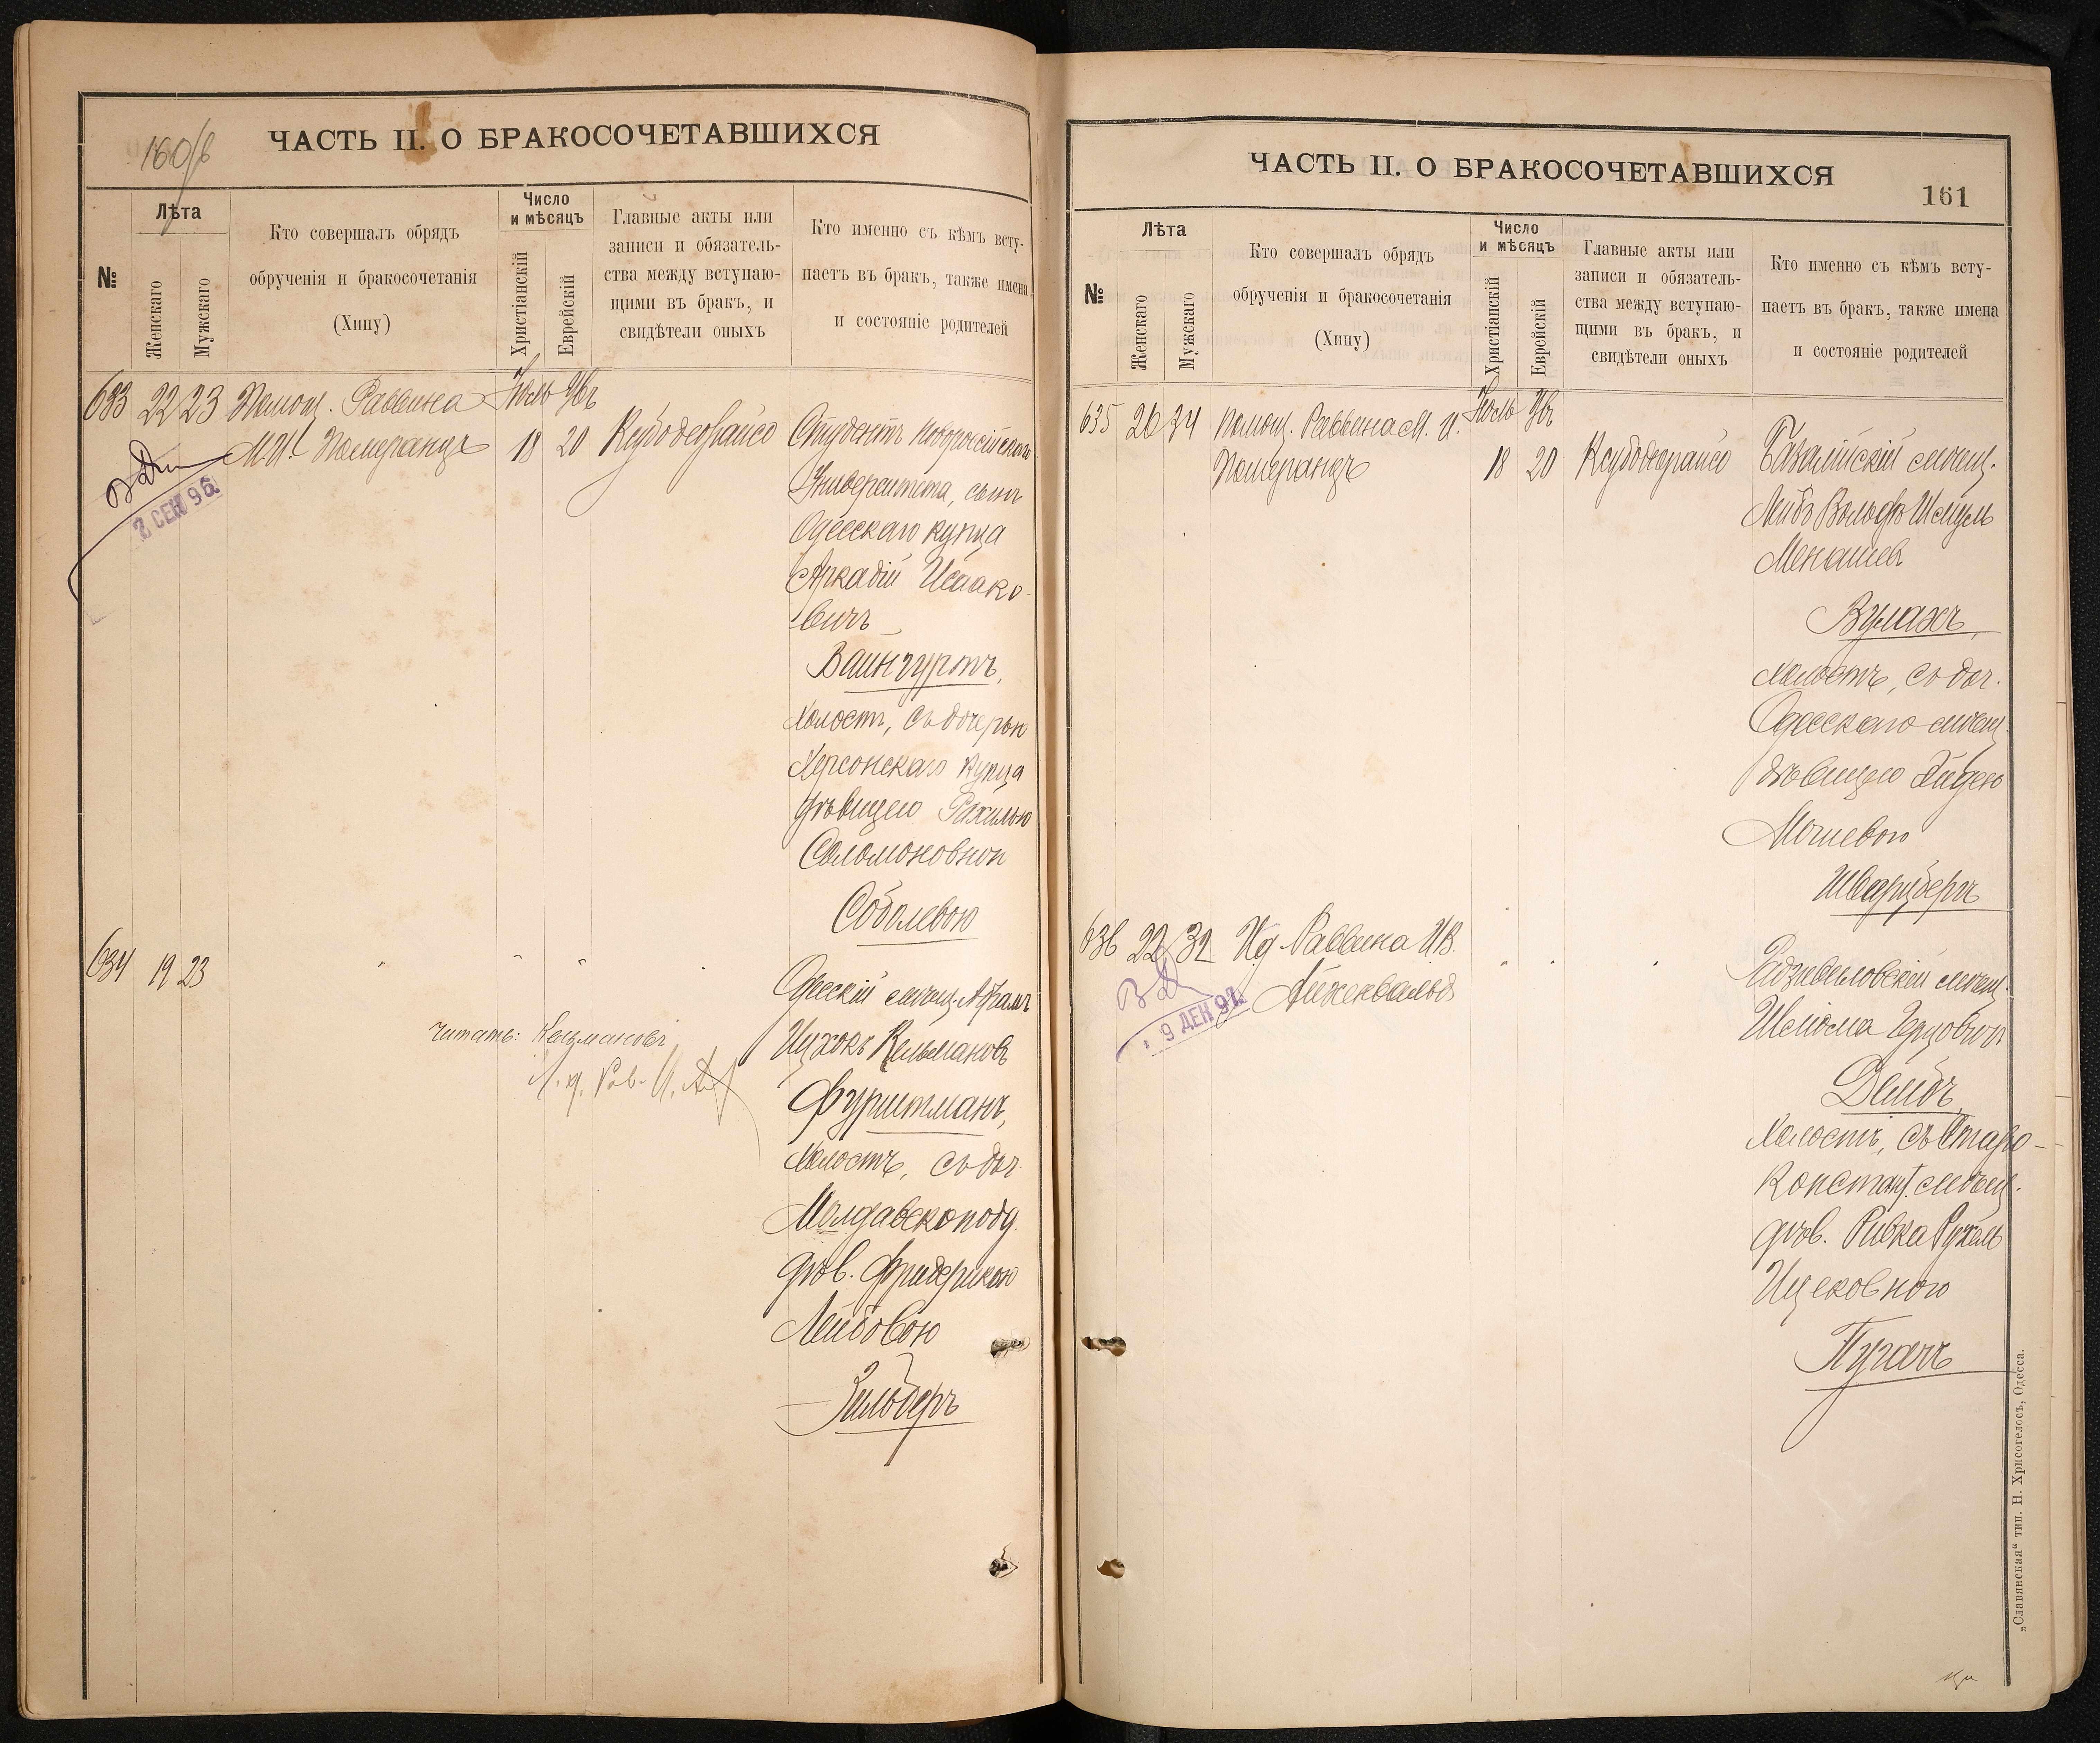 160/б
ЧАСТЬ II. О БРАКОСОЧЕТАВШИХСЯ
№
Лѣта
Женскаго
Мужскаго
Кто совершалъ обрядъ
обрученія и бракосочетанія
(Хипу)
Число
и мѣсяцъ
Христіанскій
Еврейскій
Главные акты или
записи и обязатель-
ства между вступаю-
щими въ бракъ, и
свидѣтели оныхъ
Кто именно съ кѣмъ всту-
паетъ въ бракъ, также имена
и состояніе родителей
633 22 23 Помощ. Раввина
М.И. Померанцъ
18 20
Студентъ Новороссійскаго
Университета, сынъ
Одесскаго купца
Аркадій Исаако-
вичъ
Вайнгуртъ,
холостъ, съ дочерью
Херсонскаго купца
дѣвицею Рахилью
Соломоновной
Соболевою
2 СЕН 96.
634 19 23 " " "
Одесскій мѣщ. Абрамъ
Ицхокъ Кельмановъ
Фурштманъ,
холостъ, съ доч.
Молдавскоподд.
дѣв. Фридерикою
Лейбовою
Зильберъ
читать: Кельмановъ
ЧАСТЬ II. О БРАКОСОЧЕТАВШИХСЯ
161
№
Лѣта
Женскаго
Мужскаго
Кто совершалъ обрядъ
обрученія и бракосочетанія
(Хипу)
Число
и мѣсяцъ
Христіанскій
Еврейскій
Главные акты или
записи и обязатель-
ства между вступаю-
щими въ бракъ, и
свидѣтели оныхъ
Кто именно съ кѣмъ всту-
паетъ въ бракъ, также имена
и состояніе родителей
635 26 24 Помощ. Раввина М. И.
Померанцъ
18 20
Базалійскій мѣщ.
Лейбъ Вольфъ Шмуль
Менашев
Вулахъ,
холостъ, съ доч.
Одесскаго мѣщ.
дѣвицею
Шварцбергъ
636 22 32 И.д. Раввина И.В.
Айзенвальдъ
" " "
Радзивиловскій мѣщ.
Шлиома Герцовичъ
холостъ, съ Старо-
Констант. мѣщ.
дѣв. Ривка Рухель
Ицековною
Пугачъ
9 ДЕК 97.
„Славянская“ тип. Н. Хрисогелосъ, Одесса.